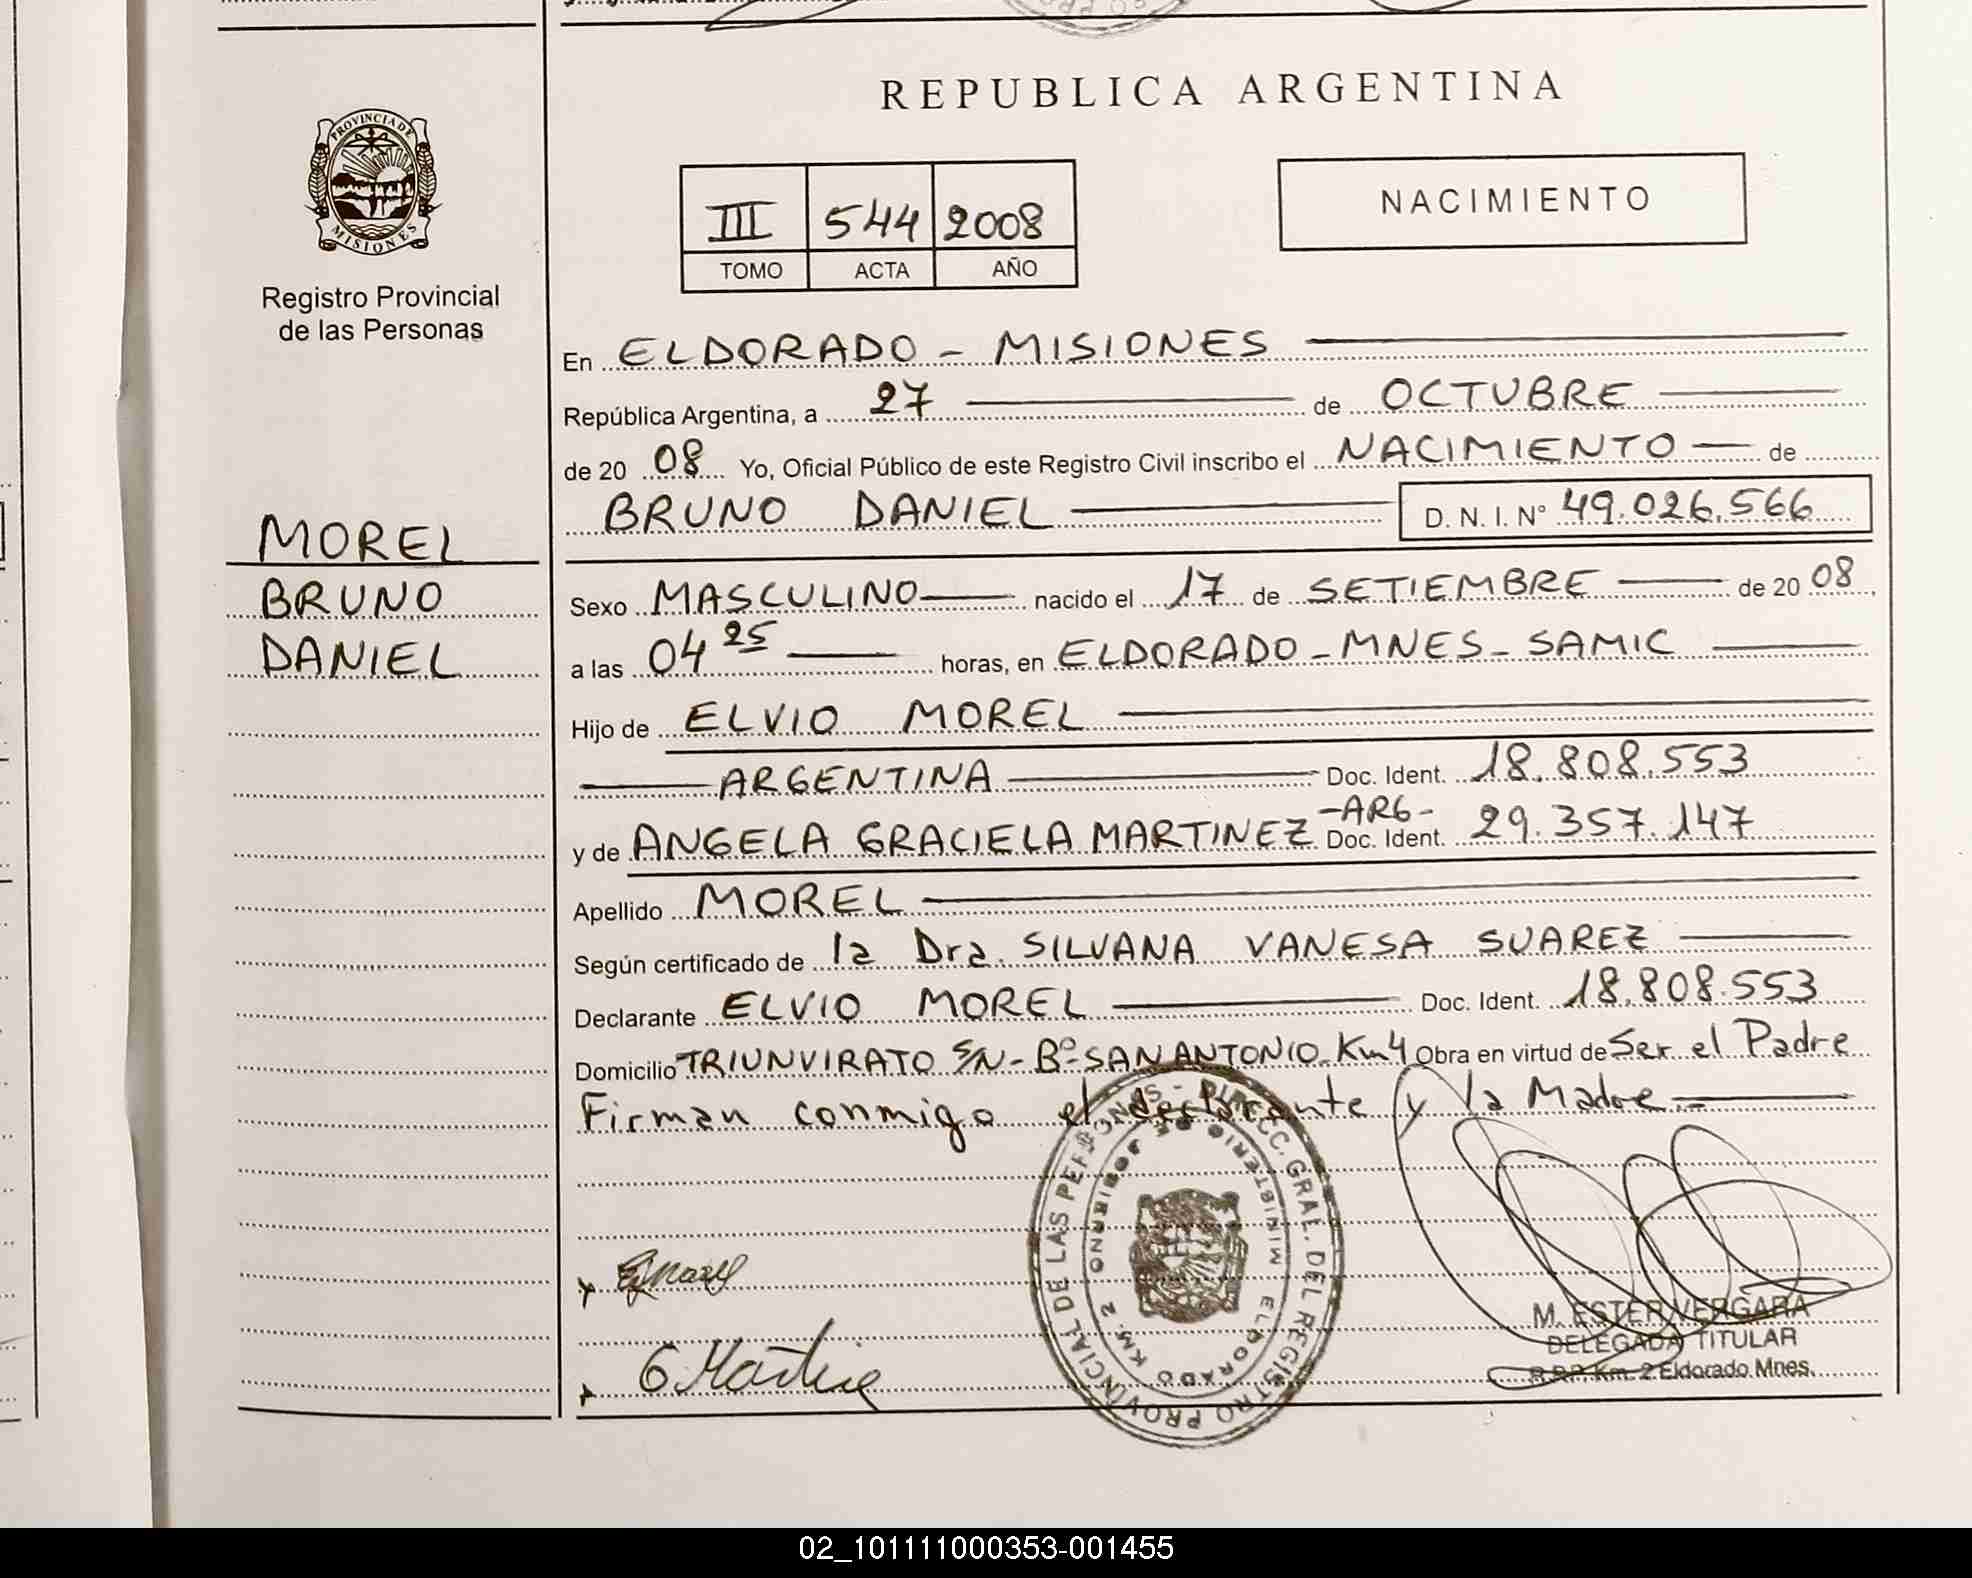 REPUBLICA ARGENTINA
PROVINCIA DE MISIONES
Registro Provincial
de las Personas
III 544 2008
TOMO ACTA AÑO
NACIMIENTO
En ELDORADO - MISIONES
República Argentina, a 27 de OCTUBRE
de 20 08 Yo, Oficial Público de este Registro Civil inscribo el NACIMIENTO de
BRUNO DANIEL D. N. I. N° 49.026.566
MOREL
BRUNO
DANIEL
Sexo MASCULINO nacido el 17 de SETIEMBRE de 20 08
a las 04 25 horas, en ELDORADO - MNES - SAMIC
Hijo de ELVIO MOREL
ARGENTINA Doc. Ident. 18.808.553
y de ANGELA GRACIELA MARTINEZ -ARG- Doc. Ident. 29.357.147
Apellido MOREL
Según certificado de la Dra. SILVANA VANESA SUAREZ
Declarante ELVIO MOREL Doc. Ident. 18.808.553
Domicilio TRIUNVIRATO S/N - B° - SAN ANTONIO - Km 4 Obra en virtud de Ser el Padre
Firman conmigo el declarante y la Madre.-
G Martine
M. ESTER VERGARA
DELEGADA TITULAR
R.P.P. Km. 2 Eldorado Mnes.
REGISTRO PROVINCIAL DE LAS PERSONAS - DIRECC. GRAL. DEL
MINISTERIO DE GOBIERNO
ELDORADO KM. 2
02_101111000353-001455